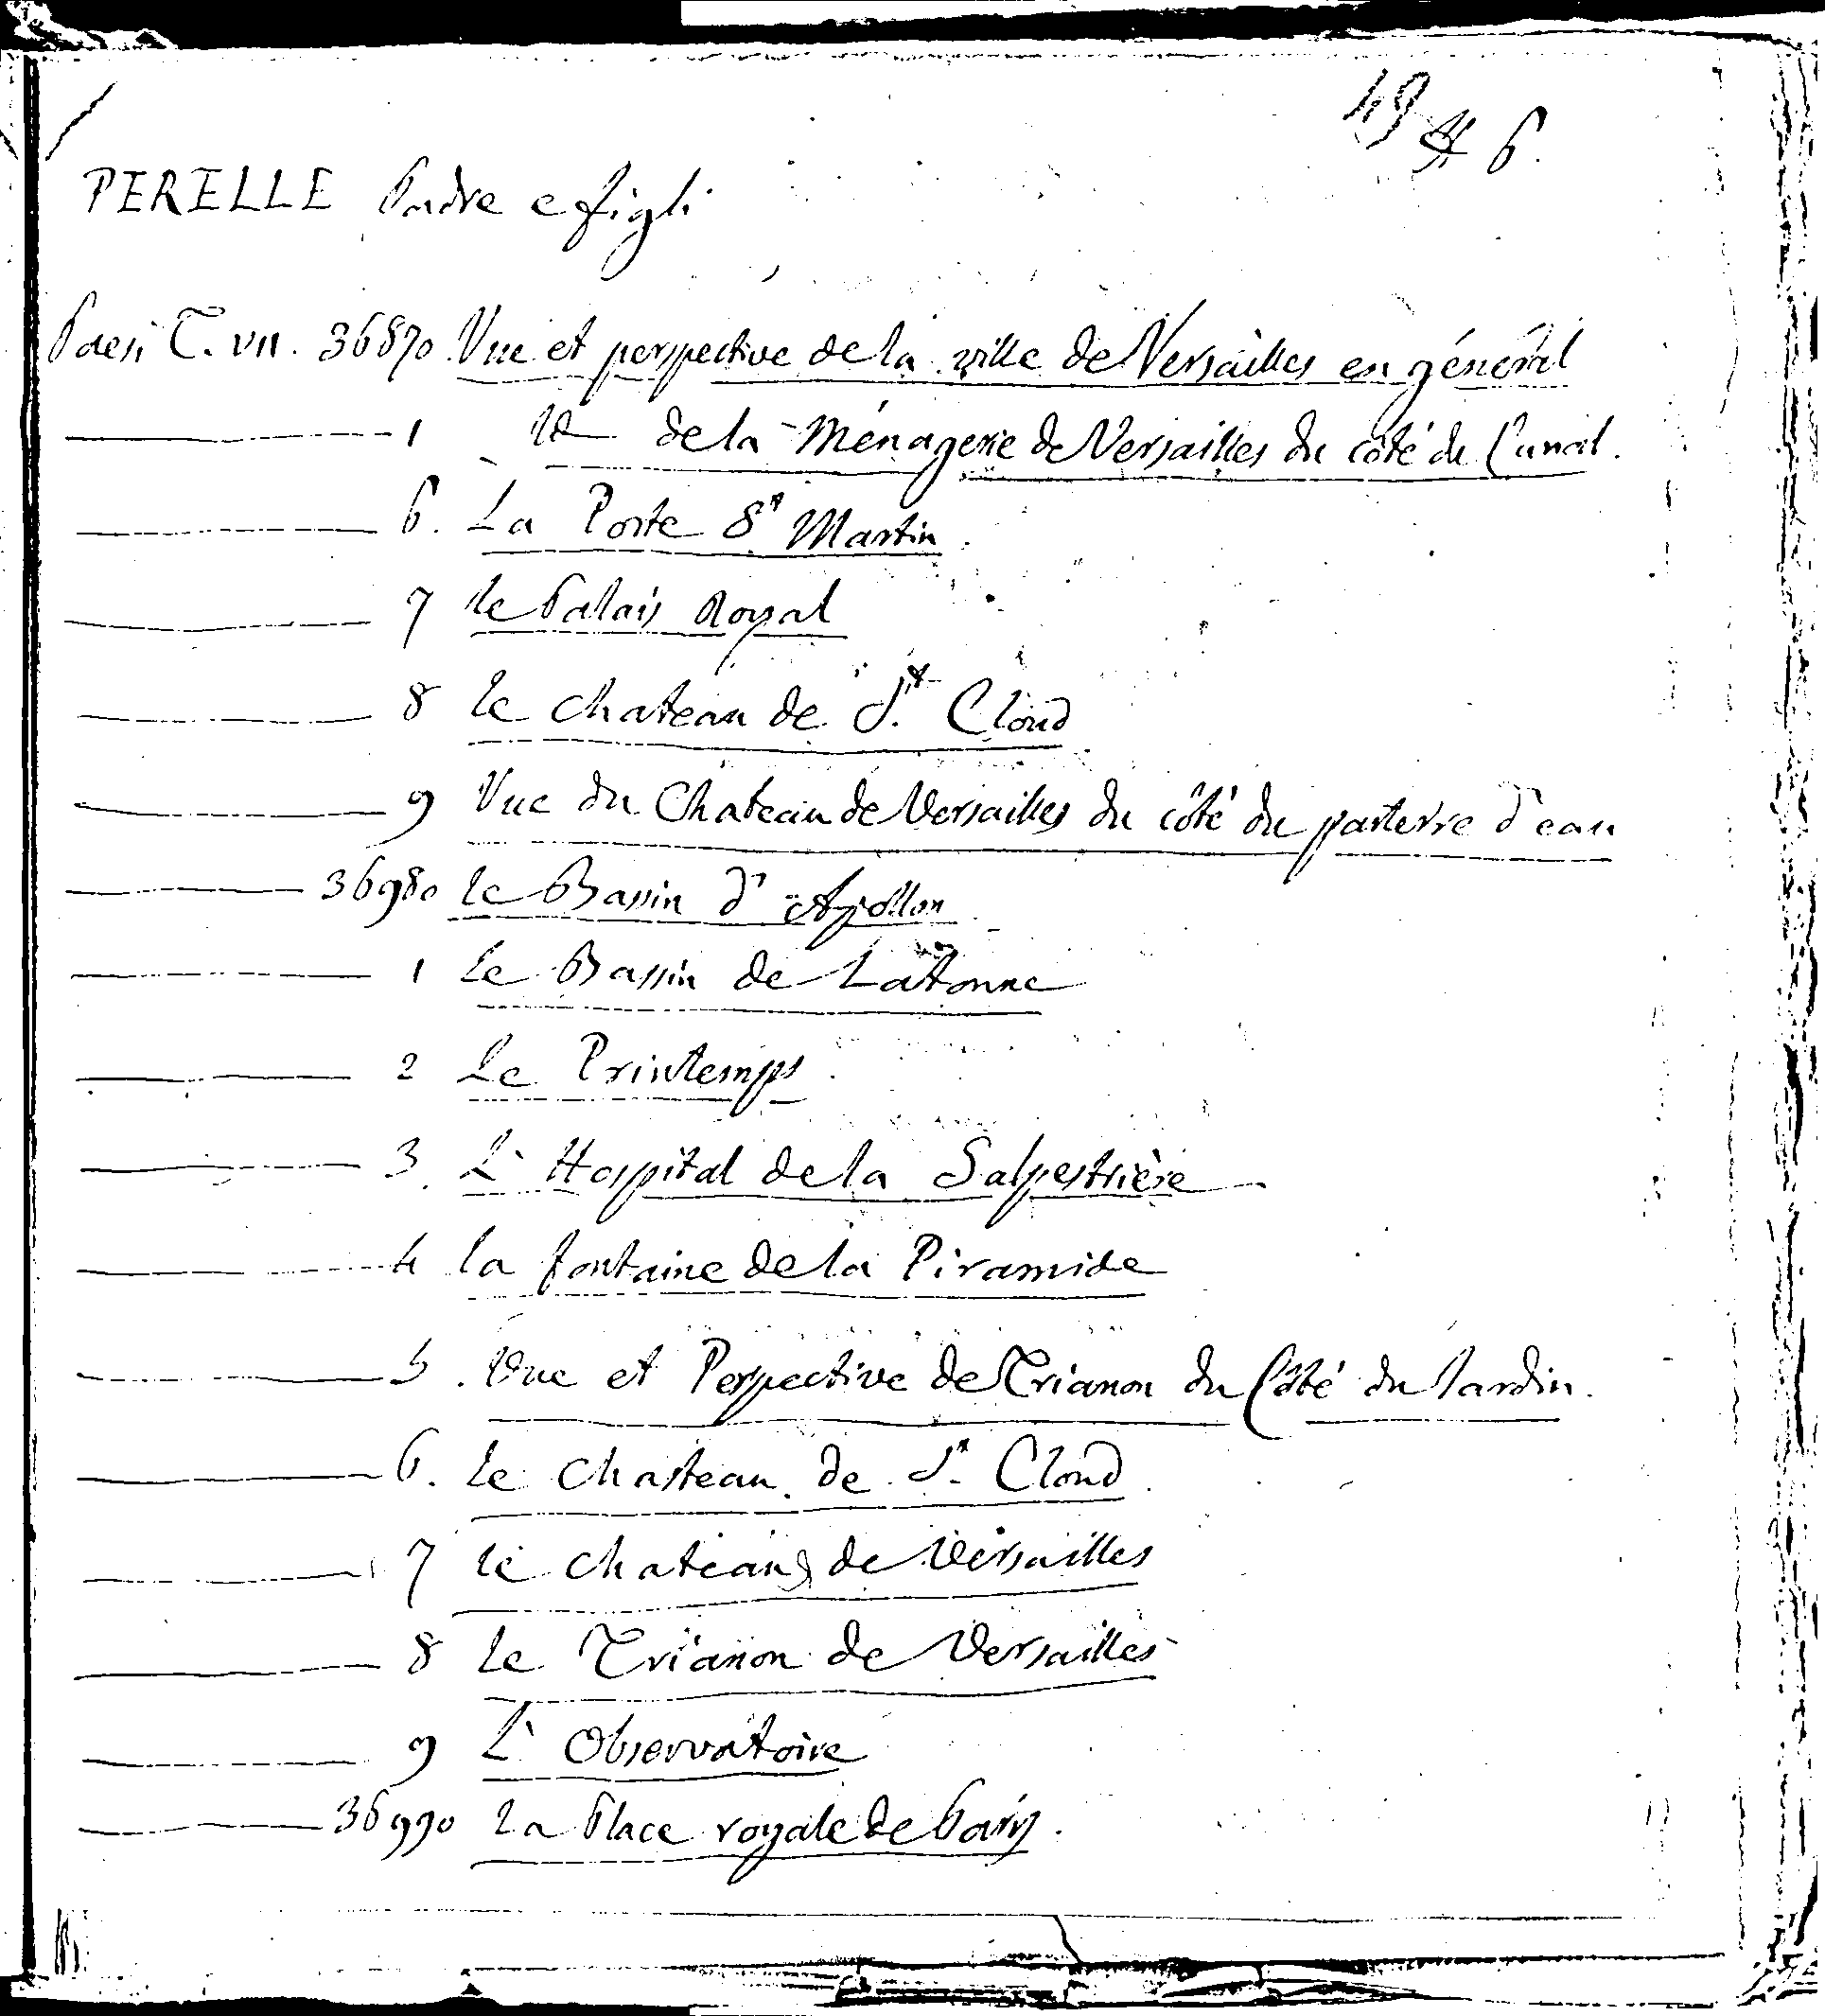 49
6.
PERELLE Padre e figli
Paesi T. VII. 36870 Vue et perspective de la ville de Versailles en général
1 Id de la Ménagerie de Versailles du côté du Canal.
6. La Porte St Martin.
7 le Palais Royal
8 le chateau de St. Cloud
9 Vue du Chateau de Versailles du côté du parterre d'eau
36980 le Bassin d'Apollon
1 Le Bassin de Latonne
2 Le Printemps.
3. L'Hospital de la Salpestrière
4 la fontaine de la Piramide
5. Vue et Perspective de Trianon du Côté du Jardin.
6. le Chasteau de St. Cloud
7 le chateau de Versailles
8 le Trianon de Versailles
9 L'Observatoire
36990 La Place royale de Paris.